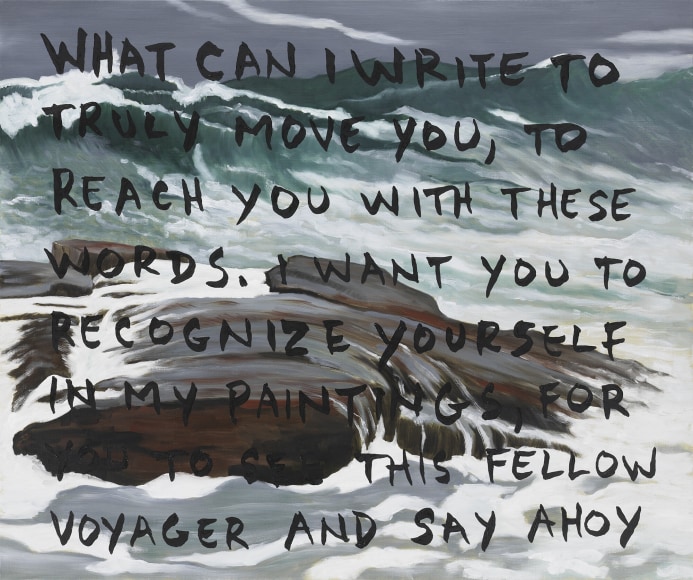 WHAT CAN I WRITE TO
TRULY MOVE YOU, TO
REACH YOU WITH THESE
WORDS. I WANT YOU TO
RECOGNIZE YOURSELF
IN MY PAINTINGS, FOR
YOU TO SEE THIS FELLOW
VOYAGER AND SAY AHOY